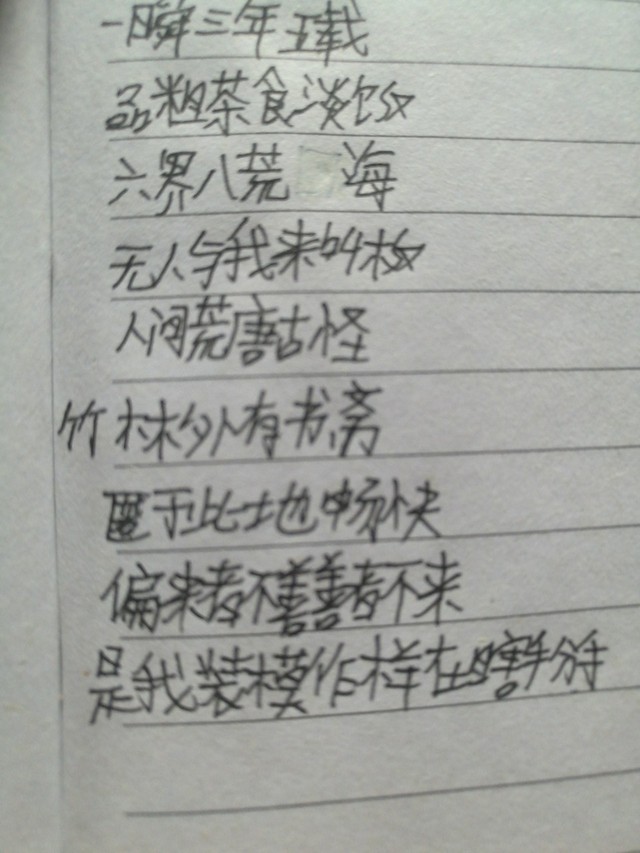 一瞬三年五载
品粗茶食淡饭
六界八荒 海
无人与我来叫板
人间荒唐古怪
竹林外有书斋
匿于此地畅快
偏来者不善善者不来
是我装模作样在瞎掰分手